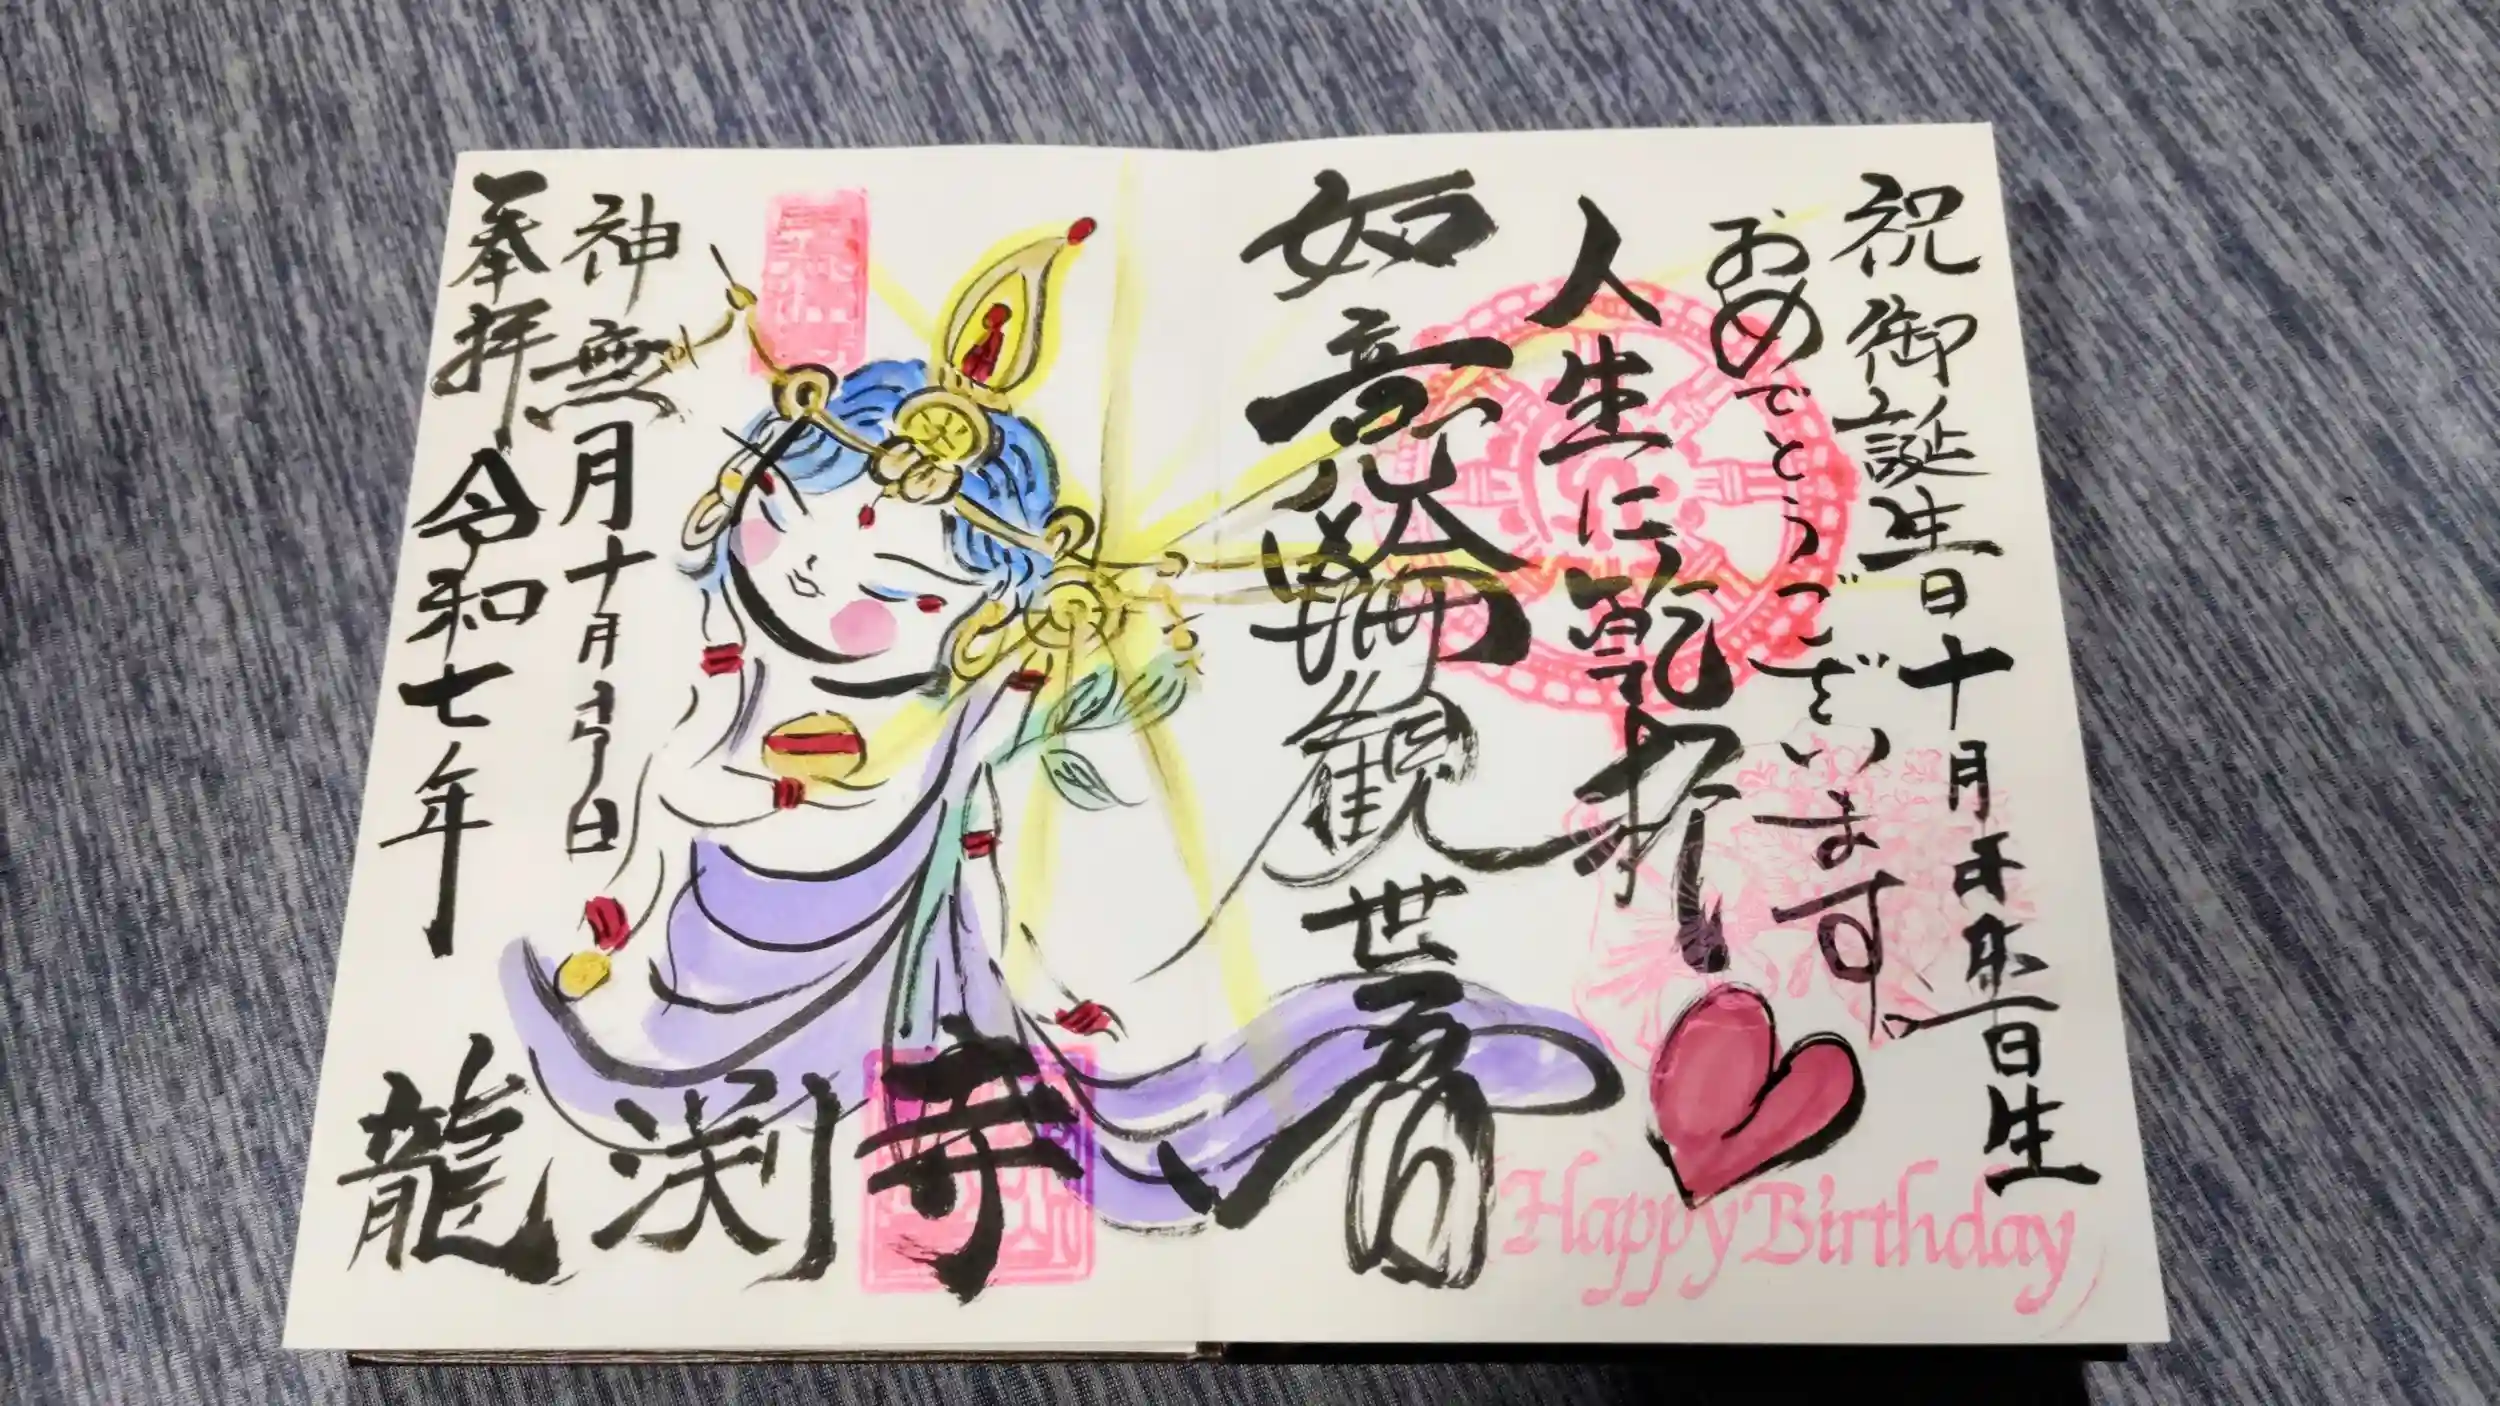 祝御誕生日十月五年一日生
おめでとうございます
人生に乾杯!
如意輪観世音
Happy Birthday
神無月十月
日
奉拝 令和七年
龍渕寺